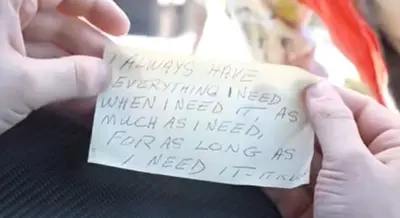 I ALWAYS HAVE
EVERYTHING I NEED
WHEN I NEED IT, AS
MUCH AS I NEED,
FOR AS LONG AS
I NEED IT-